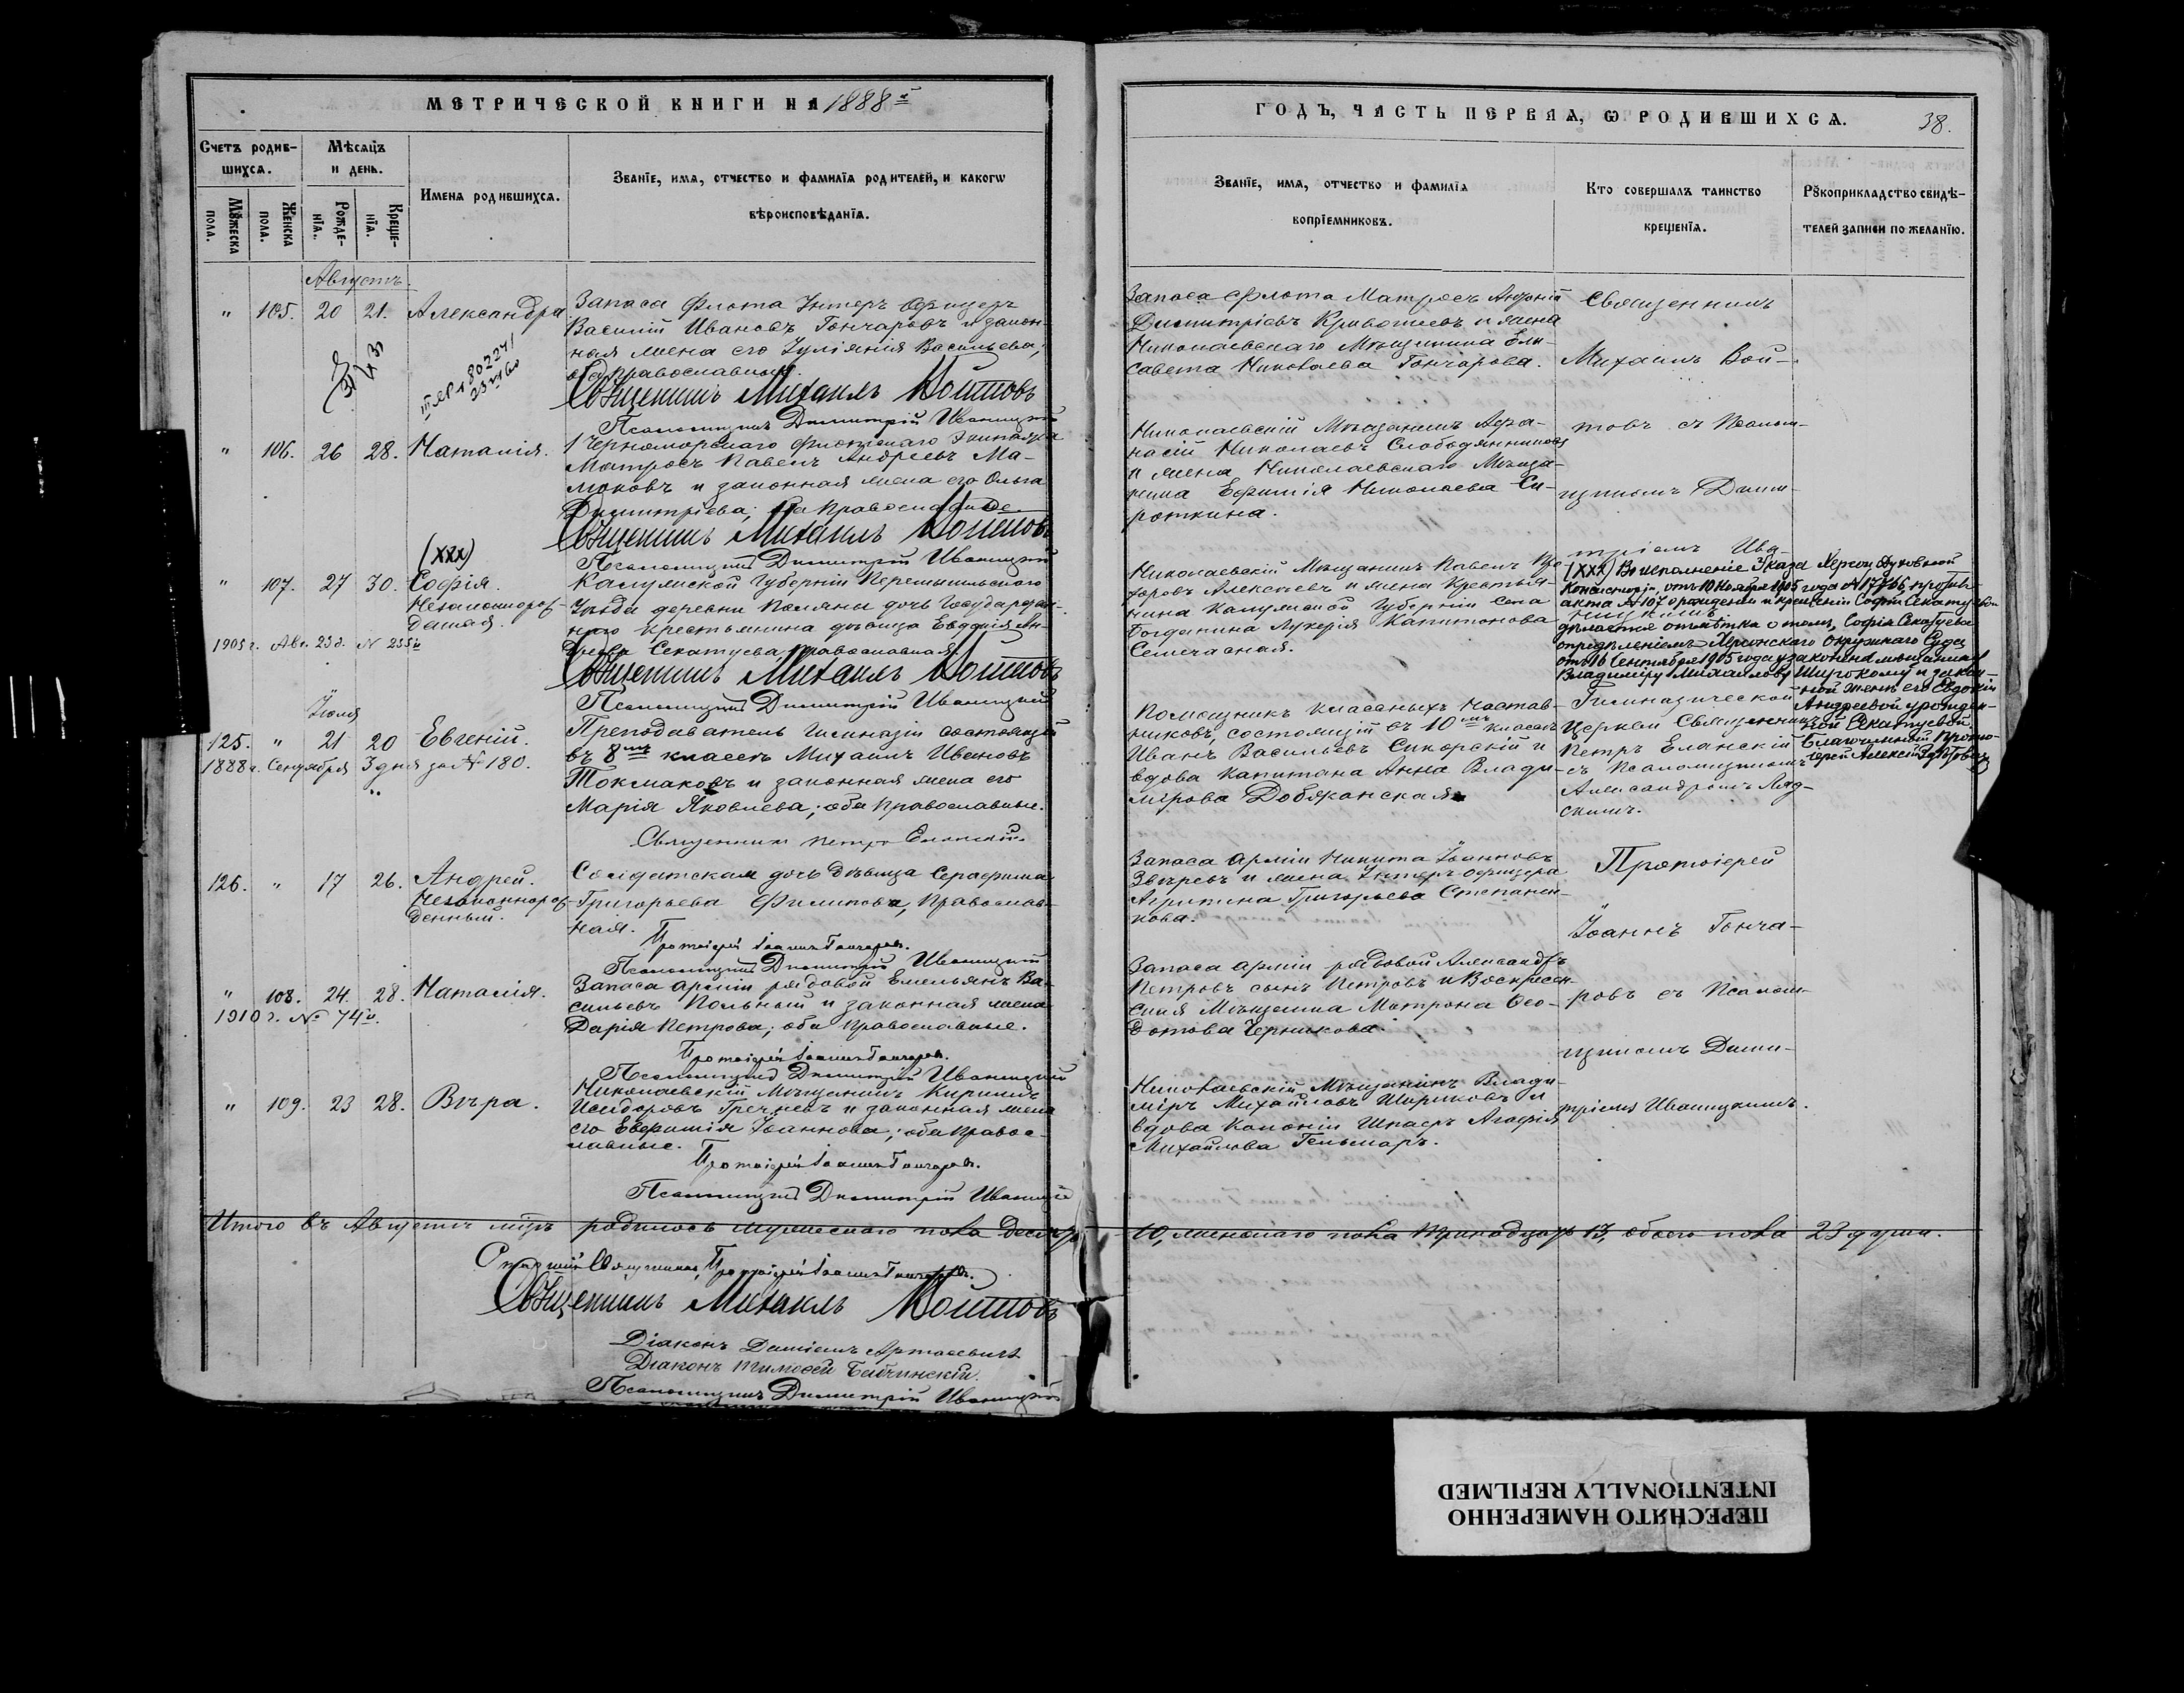 МЕТРИЧЕСКОЙ КНИГИ НА 1888 й
ГОДЪ, ЧАСТЬ ПЕРВАЯ, Ѡ РОДИВШИХСѦ.
38.
Счетъ родив-
шихсѧ.
Мѣсѧцъ
и день.
Имена родившихсѧ.
Званїе, имѧ, отчество и фамилїѧ родителей, и какогѡ
вѣроисповѣданїѧ.
Мꙋжеска
пола.
Женска
пола.
Рожде-
нїѧ.
Креще-
нїѧ.
Званїе, имѧ, отчество и фамилїѧ
воспрїемниковъ.
Кто совершалъ таинство
крещенїѧ.
Рꙋкоприкладство свидѣ-
телей записи по желанїю.
Августъ
" 105. 20 21. Александра
Запаса Флота Унтеръ Офицеръ
Василій Ивановъ Гончаровъ и закон-
ная жена его Іуліанія Васильева;
оба православные.
Священникъ Михаилъ Войтовъ
Псаломщикъ Димитрій Иваницкій
Запаса Флота Матросъ
Димитріевъ и жена
Николаевскаго Мѣщанина Ели-
савета Николаева Гончарова.
Священникъ
Михаилъ Вой-
" 106. 26 28. Наталія.
1 Черноморскаго Флотскаго Экипажа
Матросъ Павелъ Андреевъ Ма-
и законная жена его Ольга
Димитріева; оба православные.
Священникъ Михаилъ Войтовъ
Псаломщикъ Димитрій Иваницкій
Николаевскій Мѣщанинъ Афа-
насій Николаевъ
и жена Николаевскаго Мѣща-
нина Ефимія Николаева Си-
роткина.
товъ съ Псалом-
щикомъ Дими-
тріемъ Ива-
(ХХХ)
" 107. 27 30. Софія.
Незаконнорож-
денная.
1905 г. Авг. 23 д. № 255
Калужской Губерніи Перемышльского
Уѣзда деревни Поляны дочь Государствен-
наго крестьянина дѣвица Евдокія Ан-
дреева Секатуева православная.
Священникъ Михаилъ Войтовъ
Псаломщикъ Димитрій Иваницкій
Николаевскій Мѣщанинъ Павелъ
Алексѣевъ и жена Крестья-
нина Калужской Губерніи Села
Богданина Лукерія Капитонова
(ХХХ) Во исполненіе Указа Херсон. Духовной
Консисторіи, отъ 10 Ноября 1905 года № 17766, противъ
акта № 107 о рожденіи и крещеніи Софіи Секатуевой
дѣлается отмѣтка о томъ, Софія Секатуева
опредѣленіемъ Херсонскаго Окружнаго Суда
отъ 16 Сентября 1905 года узаконена мѣщанину
Владиміру Михайлову Широкому и закон-
ной женѣ его Евдокіи
Андреевой урожден-
ной Секатуевой.
Благочинный Прото-
іерей Алексій
Іюля
125. " 21 20 Евгеній.
1888 г. Сентября 3 дня за № 180.
Преподаватель Гимназіи состоящій
въ 8мъ классѣ Михаилъ Ивановъ
Токмаковъ и законная жена его
Марія Яковлева; оба православные.
Священникъ Петръ Еланскій
Помощникъ классныхъ Настав-
никовъ, состоящій въ 10мъ классѣ
Иванъ Васильевъ Сикорскій и
вдова Капитана Анна Влади-
мірова Добяжанская
Гимназической
Церкви Священникъ
Петръ Еланскій
съ Псаломщикомъ
Александромъ Ляд-
скимъ.
126. " 17 26. Андрей.
Незаконнорож-
денный.
Солдатская дочь дѣвица Серафима
Григорьева Филипова, Православ-
ная.
Протоіерей Іоаннъ Гончаровъ.
Псаломщикъ Димитрій Иваницкій
Запаса Арміи Никита Іоанновъ
Звѣревъ и жена Унтеръ офицера
Агрипина Григорьева Степанен-
кова.
Протоіерей
Іоаннъ Гонча-
" 108. 24. 28. Наталія.
1910 г. № 74
Запаса Арміи рядовой Емельянъ Ва-
сильевъ Польный и законная жена
Дарія Петрова; оба православные.
Протоіерей Іоаннъ Гончаровъ.
Псаломщикъ Димитрій Иваницкій
Запаса Арміи рядовой Александръ
Петровъ сынъ Петровъ и Воскресен-
ская Мѣщанка Матрона Ѳео-
дотова Черникова.
ровъ съ Псалом-
щикомъ Дими-
тріемъ Иваницкимъ.
" 109. 23 28. Вѣра.
Николаевскій Мѣщанинъ Кирилъ
Исидоровъ Гречневъ и законная жена
его Евфимія Іоаннова; оба право-
славные.
Протоіерей Іоаннъ Гончаровъ.
Псаломщикъ Димитрій Иваницкій
Николаевскій Мѣщанинъ Влади-
міръ Михайловъ Шариковъ и
вдова Колоніи Шпаеръ Агафія
Михайлова Гельмаръ.
Итого въ Августѣ мцѣ родилось мужескаго пола десять 10, женскаго пола тринадцать 13, обоего пола 23 души.
Старшій Священникъ, Протоіерей Іоаннъ Гончаровъ.
Священникъ Михаилъ Войтовъ
Діаконъ Даміанъ
Діаконъ Тимоѳей Бабчинскій.
Псаломщикъ Димитрій Иваницкій
ПЕРЕСНЯТО НАМЕРЕННО
INTENTIONALLY REFILMED